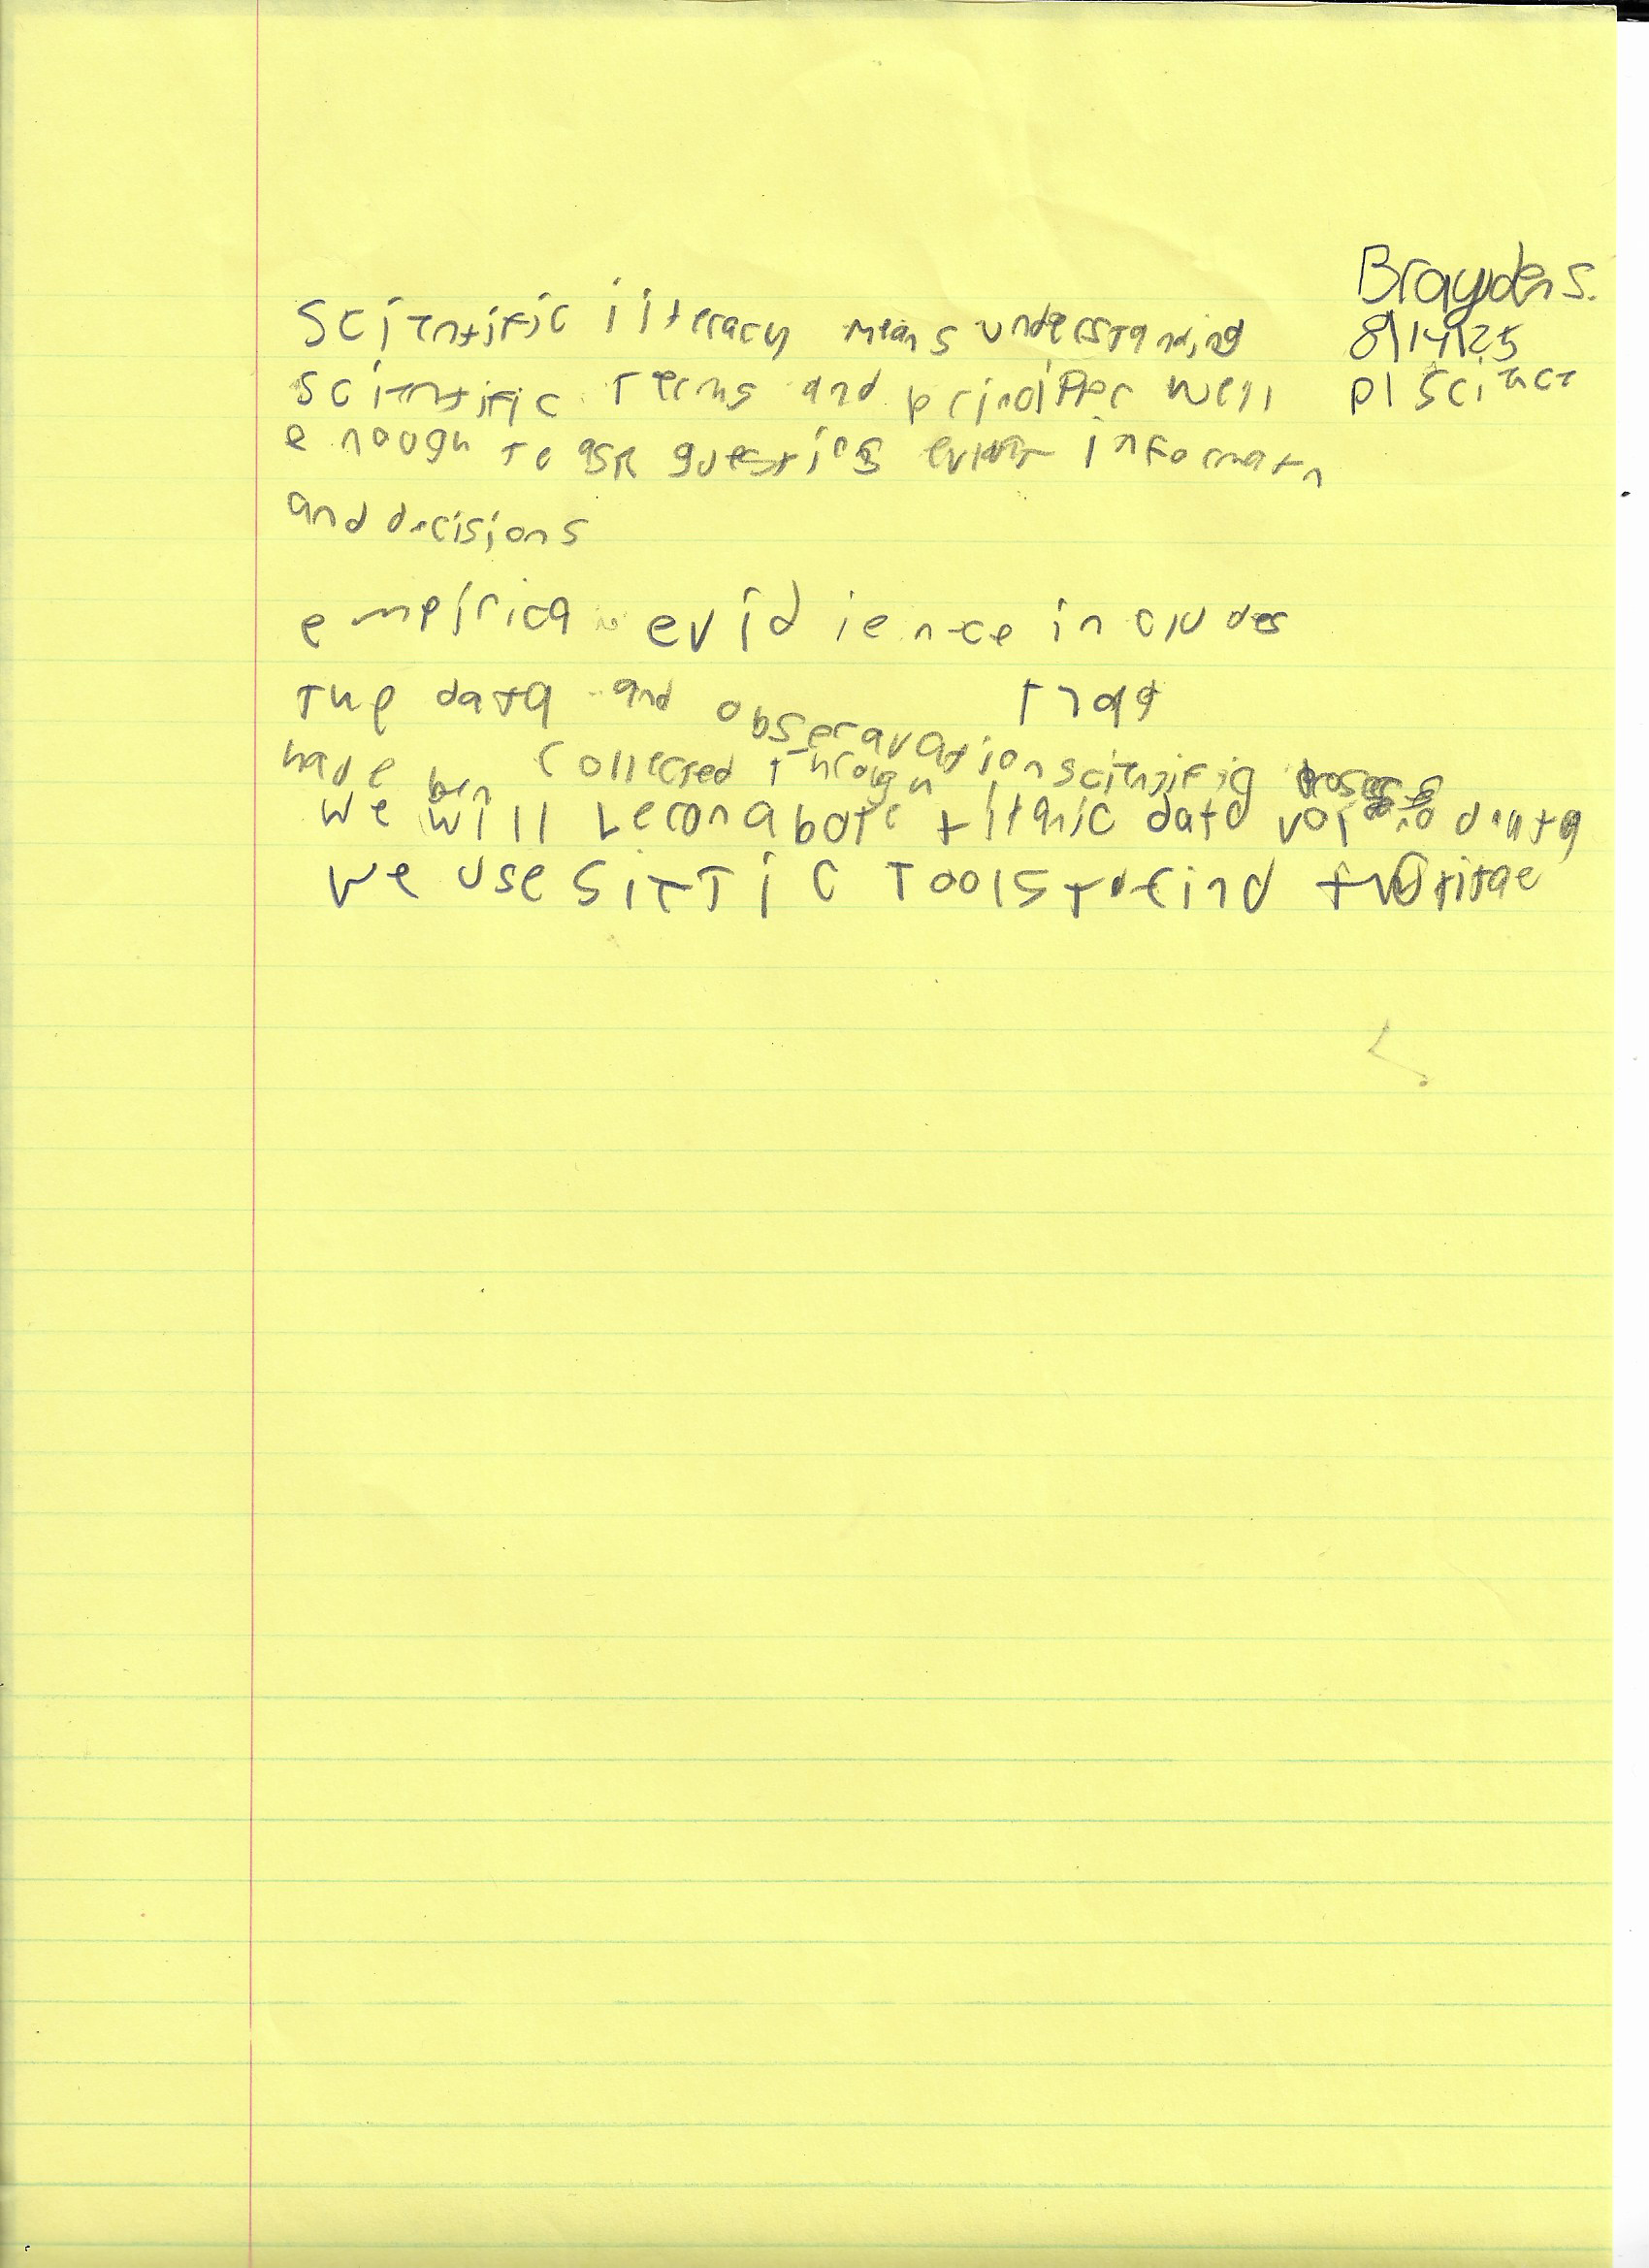 Brayden S.
8/14/25
p1 Science
Scientific literacy means understanding
scientific terms and well
enough to ask information
and decisions
empirica evidience includes
the data and obseravation that
have ben collected through scientific
We will lern abote titanic data
we use sittic tools to find